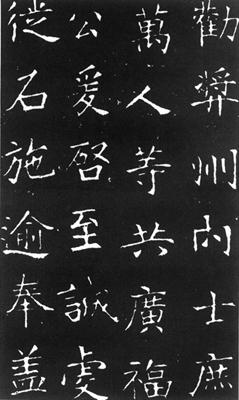 勸獎州內士庶
萬人等共廣福
公爰啓至誠虔
徙石施逾奉盖